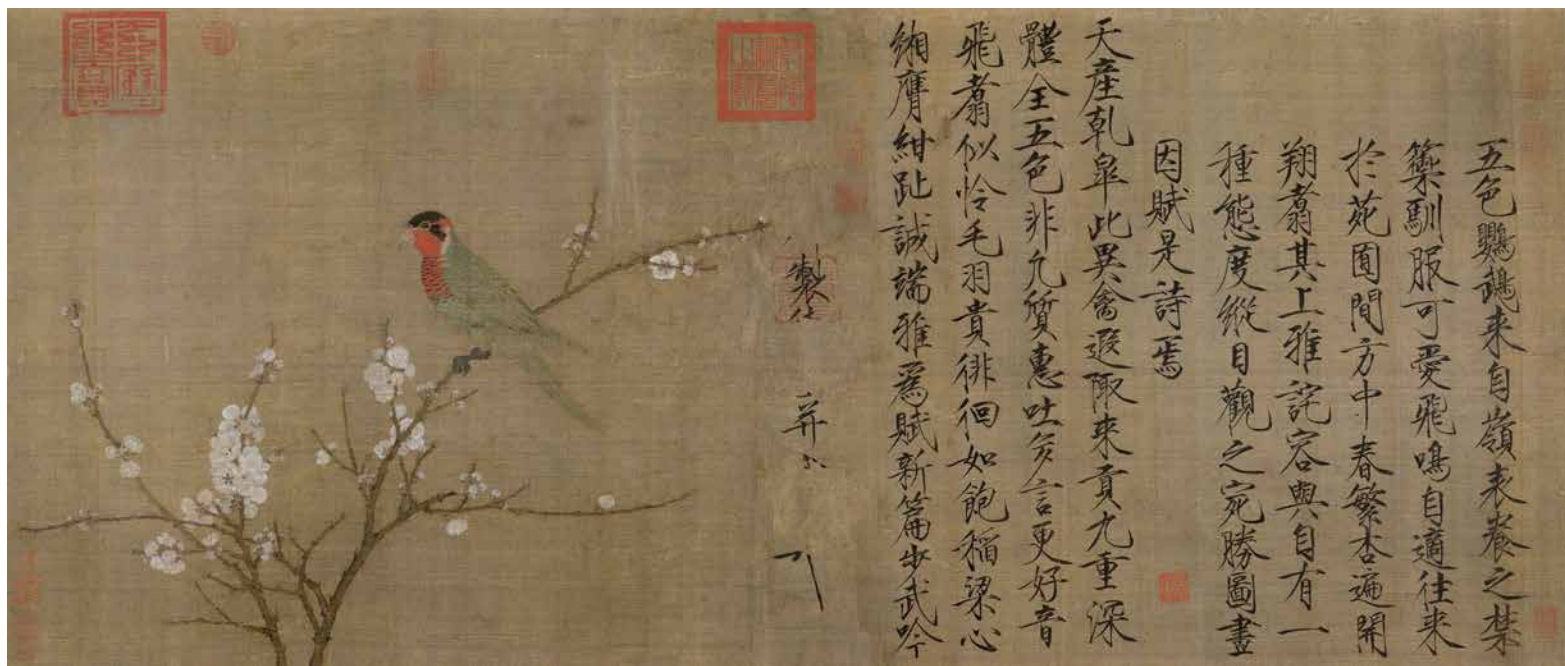 五色鸚鵡来自嶺表養之禁
籞馴服可愛飛鳴自適往来
於苑囿間方中春繁杏遍開
翔翥其上雅詫容與自有一
種態度縱目觀之宛勝圖畫
因賦是詩焉
天産乹皐此異禽遐陬来貢九重深
體全五色非凡質惠吐多言更好音
飛翥似怜毛羽貴徘徊如飽稲粱心
緗膺紺趾誠端雅爲賦新篇步武吟
製 并